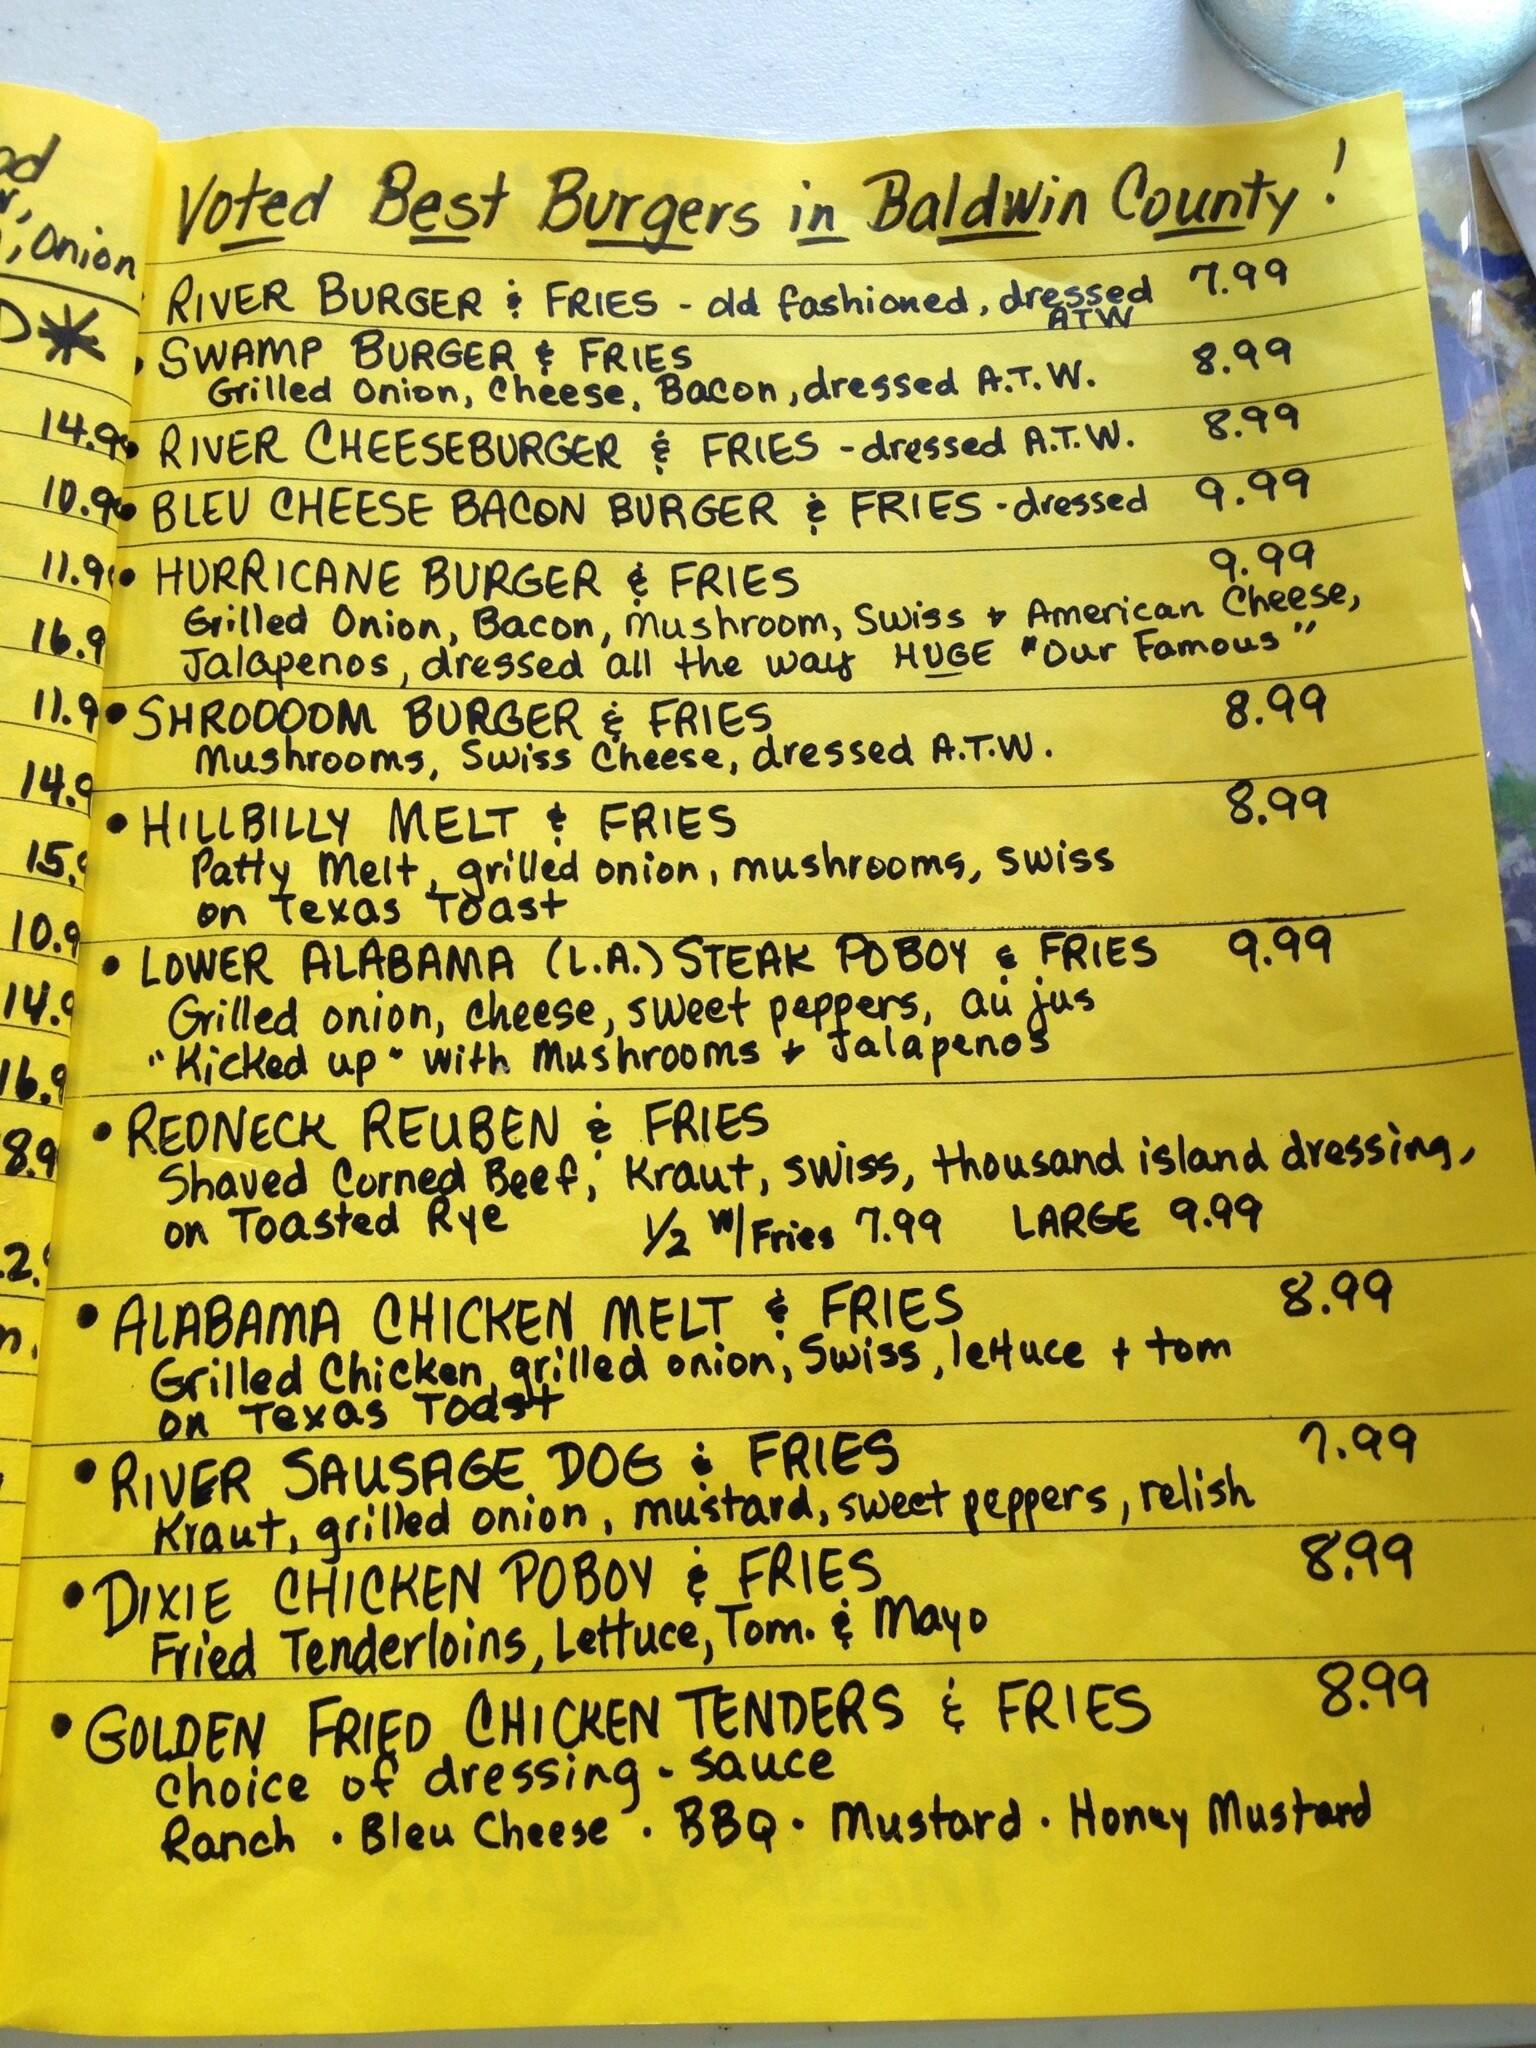 od
, Onion
Voted Best Burgers in Baldwin County!
RIVER BURGER & FRIES - old fashioned, dressed ATW 7.99
• SWAMP BURGER & FRIES 8.99
Grilled Onion, Cheese, Bacon, dressed A.T.W.
• RIVER CHEESEBURGER & FRIES - dressed A.T.W. 8.99
• BLEU CHEESE BACON BURGER & FRIES - dressed 9.99
• HURRICANE BURGER & FRIES 9.99
Grilled Onion, Bacon, Mushroom, Swiss + American Cheese,
Jalapenos, dressed all the way HUGE "Our Famous"
• SHROOOOM BURGER & FRIES 8.99
Mushrooms, Swiss Cheese, dressed A.T.W.
• HILLBILLY MELT & FRIES 8.99
Patty Melt, grilled onion, mushrooms, swiss
on Texas Toast
• LOWER ALABAMA (L.A.) STEAK POBOY & FRIES 9.99
Grilled onion, cheese, sweet peppers, au jus
"Kicked up" with Mushrooms + Jalapenos
• REDNECK REUBEN & FRIES
Shaved Corned Beef, Kraut, swiss, thousand island dressing,
on Toasted Rye 1/2 w/Fries 7.99 LARGE 9.99
• ALABAMA CHICKEN MELT & FRIES 8.99
Grilled Chicken, grilled onion, Swiss, lettuce + tom
on Texas Toast
• RIVER SAUSAGE DOG & FRIES 7.99
Kraut, grilled onion, mustard, sweet peppers, relish
• DIXIE CHICKEN POBOY & FRIES 8.99
Fried Tenderloins, Lettuce, Tom. & Mayo
• GOLDEN FRIED CHICKEN TENDERS & FRIES 8.99
choice of dressing - sauce
Ranch · Bleu Cheese · BBQ · Mustard · Honey Mustard